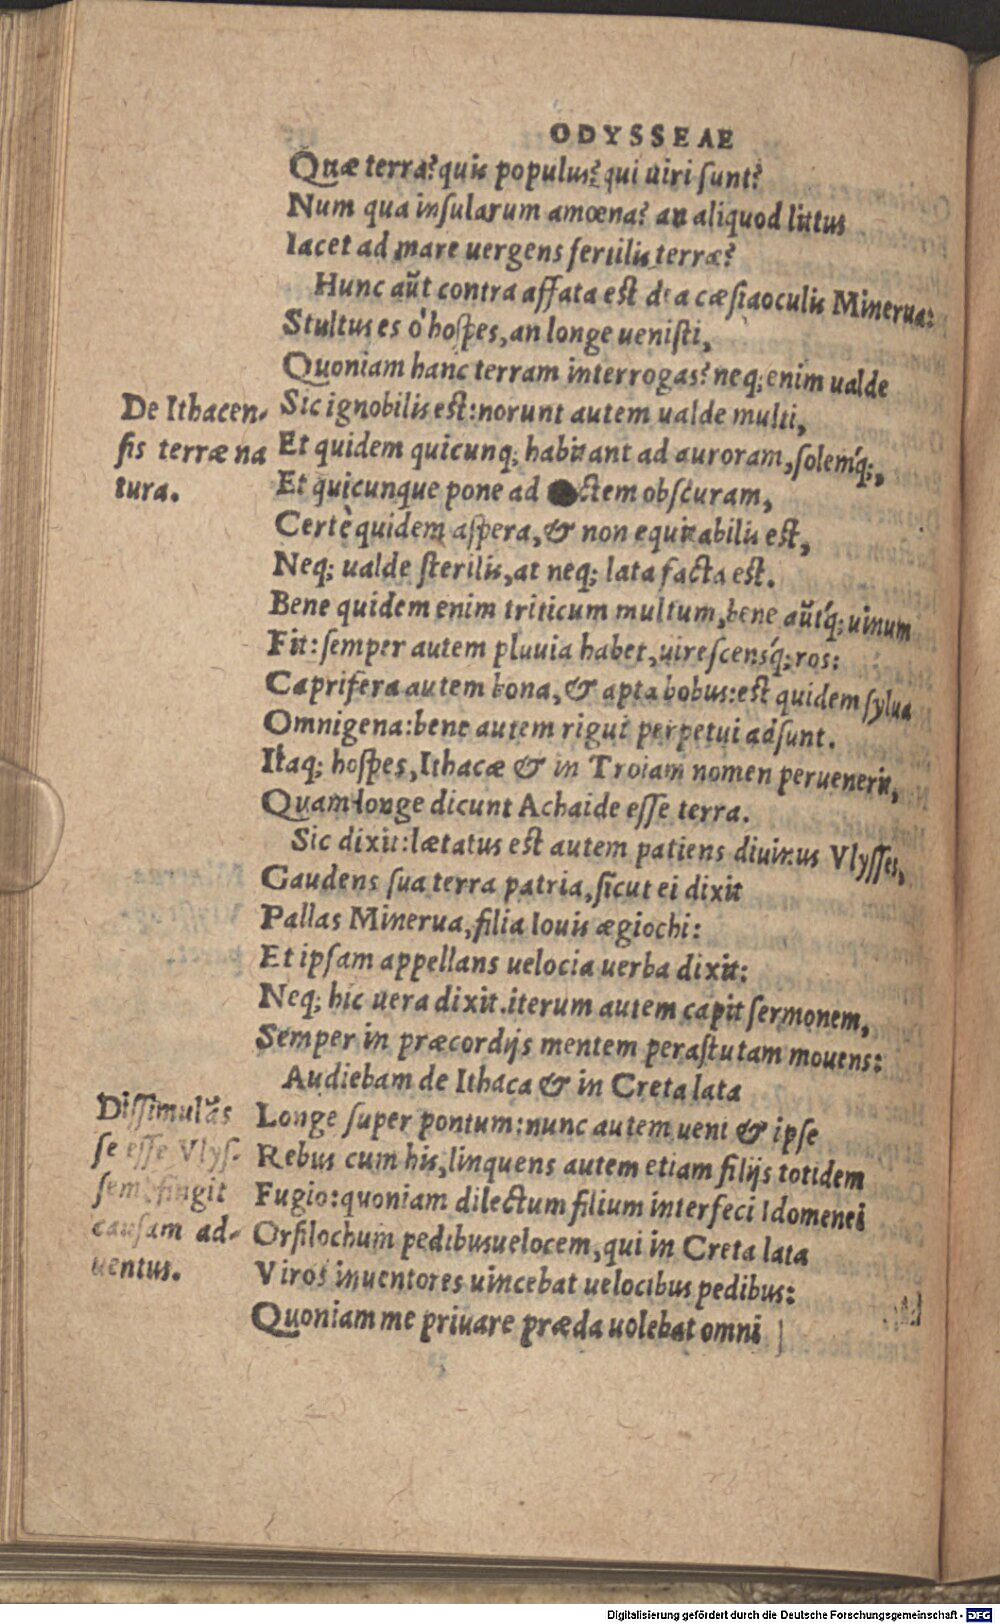 ODYSSEAE
Quæ terra? quis populus? qui uiri sunt?
Num qua insularum amœna? an aliquod littus
Iacet ad mare uergens fertilis terræ?
Hunc aūt contra affata est dea cæsiaoculis Minerua:
Stultus es ò hospes, an longe uenisti,
Quoniam hanc terram interrogas? neq; enim ualde
De Ithacen-
sis terræ na
tura.
Sic ignobilis est: norunt autem ualde multi,
Et quidem quicunq; habitant ad auroram, solemq́;,
Et quicunque pone ad ctem obscuram,
Certè quidem aspera, & non equitabilis est,
Neq; ualde sterilis, at neq; lata facta est.
Bene quidem enim triticum multum, bene aūtq́; uinum
Fit: semper autem pluuia habet, uirescensq́; ros:
Caprifera autem bona, & apta bobus: est quidem sylua
Omnigena: bene autem rigui perpetui adsunt.
Itaq; hospes, Ithacæ & in Troiam nomen peruenerit,
Quam longe dicunt Achaide esse terra.
Sic dixit: lætatus est autem patiens diuinus Vlysses,
Gaudens sua terra patria, sicut ei dixit
Pallas Minerua, filia Iouis ægiochi:
Et ipsam appellans uelocia uerba dixit:
Neq; hic uera dixit. iterum autem capit sermonem,
Semper in præcordijs mentem perastutam mouens:
Audiebam de Ithaca & in Creta lata
Dissimulās
se esse Vlys-
sem fingit
causam ad-
uentus.
Longe super pontum: nunc autem ueni & ipse
Rebus cum his, linquens autem etiam filijs totidem
Fugio: quoniam dilectum filium interfeci Idomenei
Orsilochum pedibus uelocem, qui in Creta lata
Viros inuentores uincebat uelocibus pedibus:
Quoniam me priuare præda uolebat omni
Digitalisierung gefördert durch die Deutsche Forschungsgemeinschaft - DFG